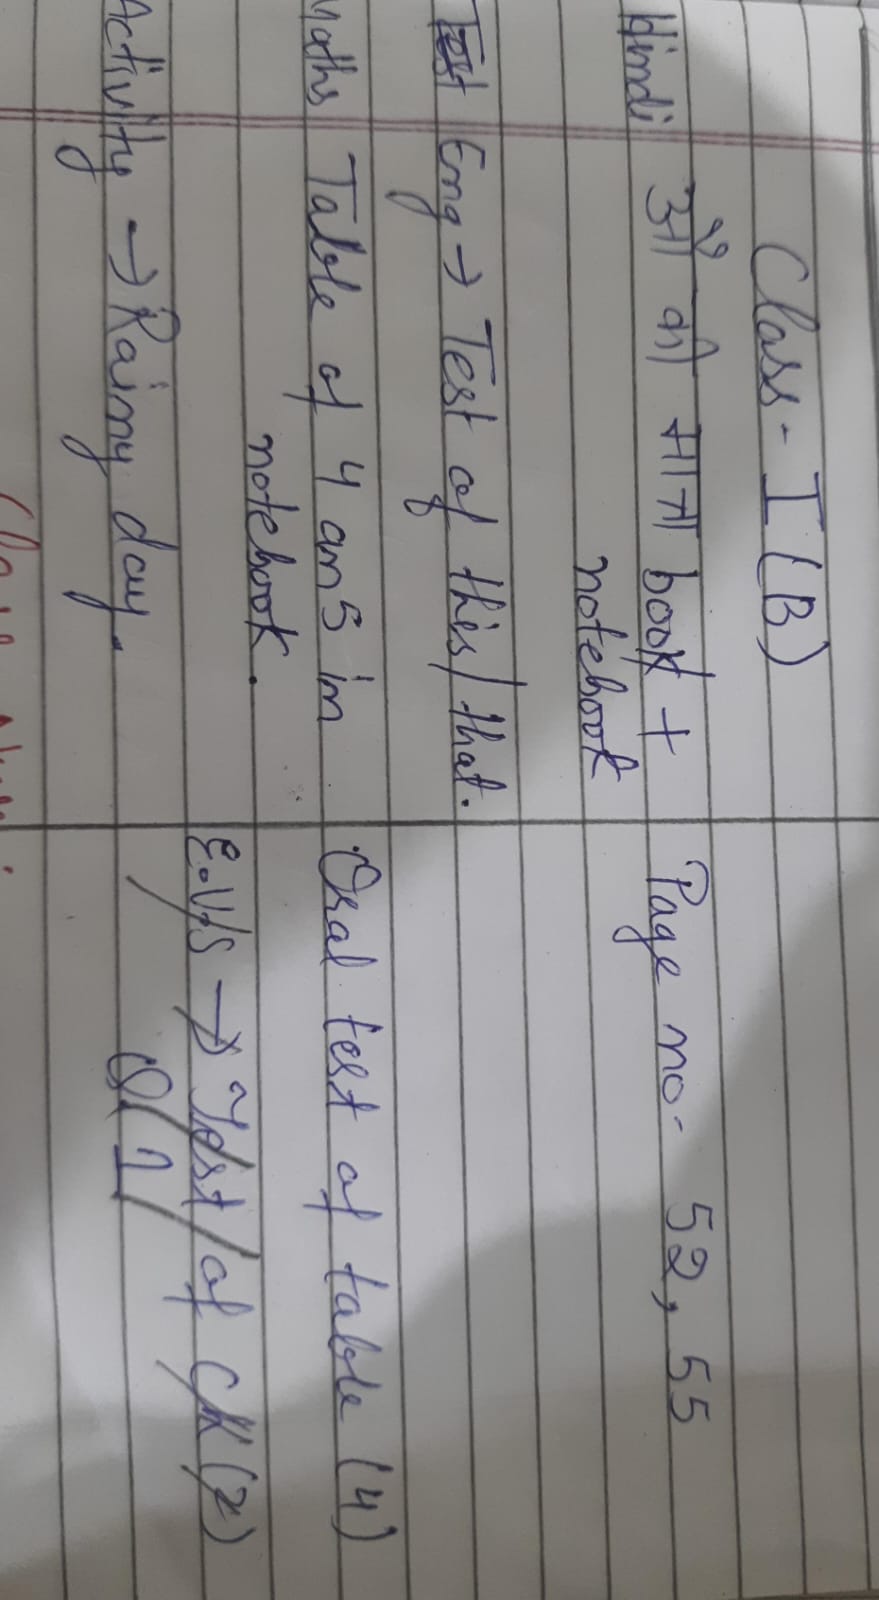 Class - I (B)
Hindi ओ की मात्रा book + Page no- 52, 55
notebook
Test Eng → Test of this/that.
Maths Table of 4 an 5 in Oral test of table (4)
notebook.
E.V.S → Test of Ch (2)
Q 1
Activity → Rainy day.